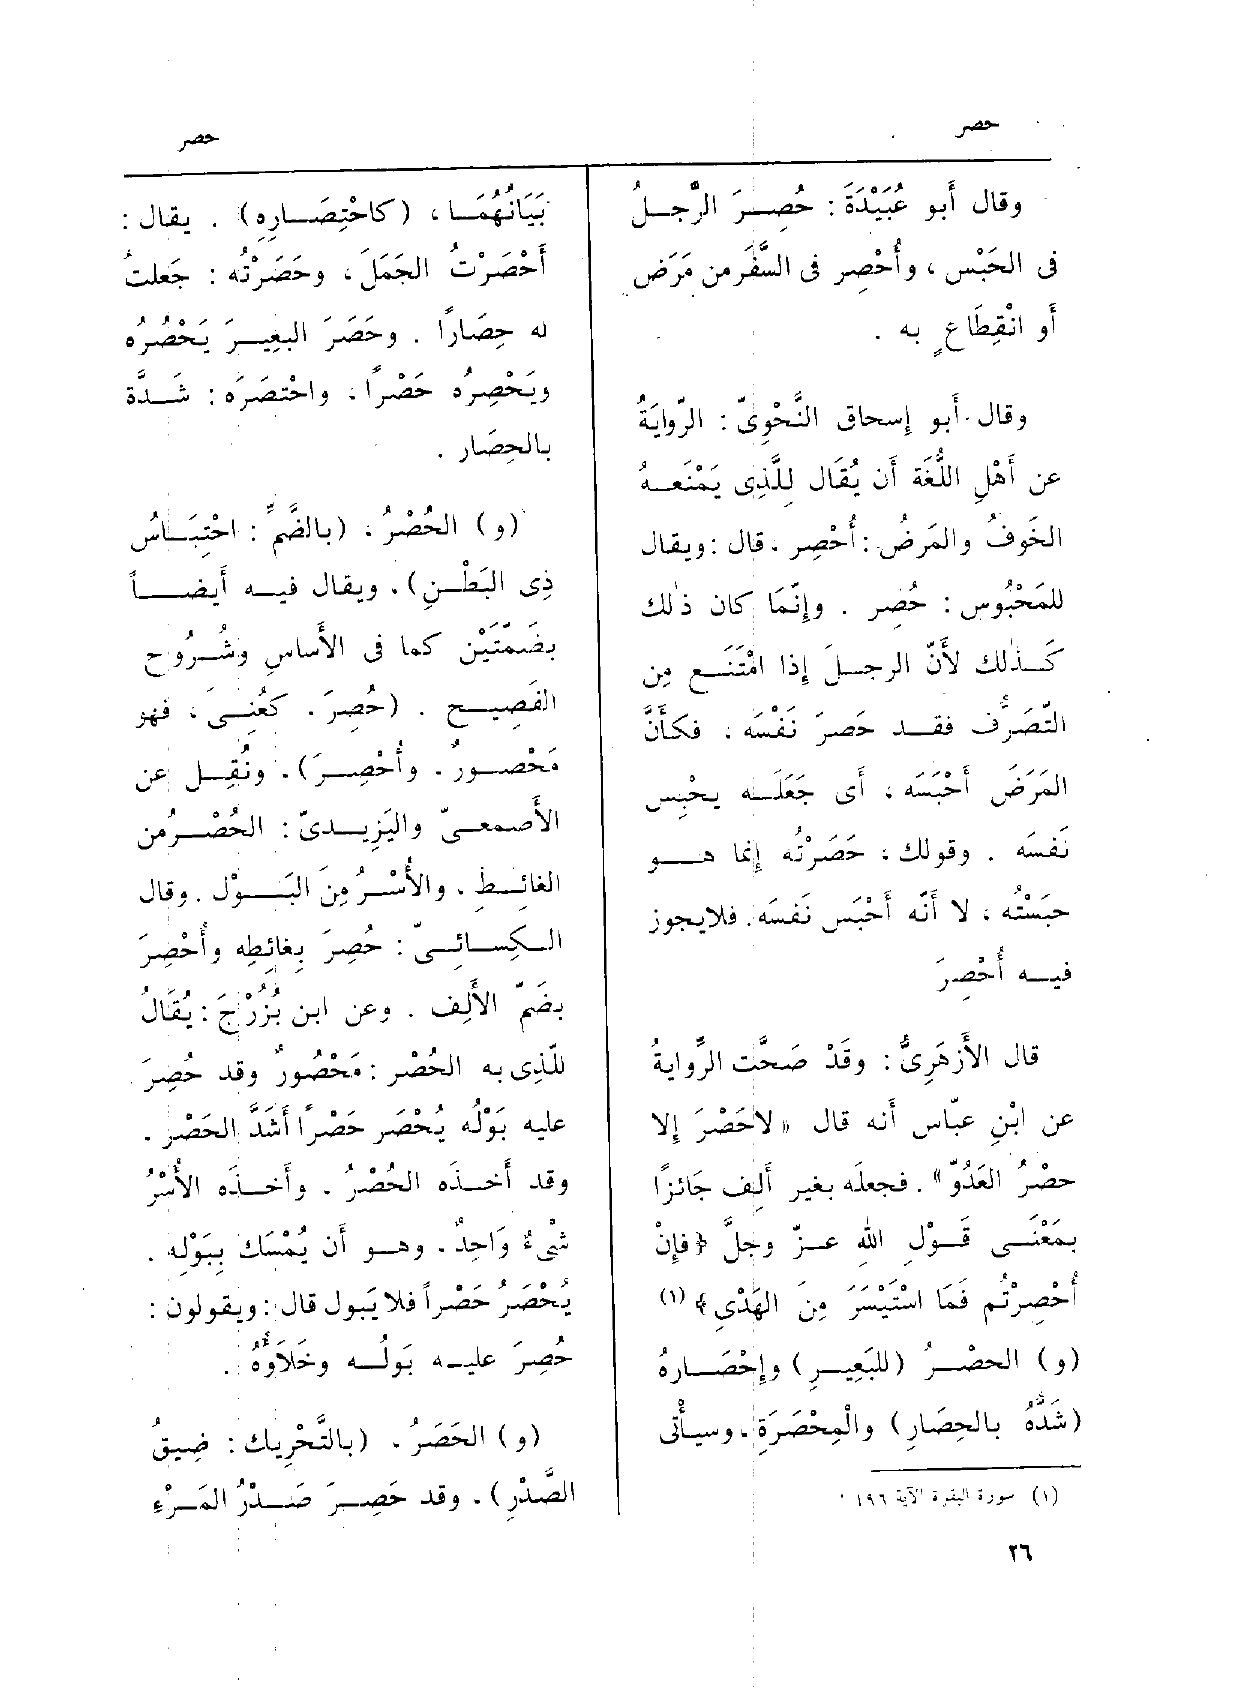 حصر
حصر
وقال أَبو عُبَيْدَةَ : حُصِـرَ الرَّجـلُ
فى الحَبْس ، وأُحْصِر فى السَّفَر من مَرَض
أو انْقِطَاعٍ به .
وقال أبو إسحاق النَّحْوِىّ : الرِّوايَةُ
عن أَهْلِ اللُّغَة أَن يُقَال لِلَّذِى يَمْنَعـهُ
الخَوفُ والمَرضُ : أُحْصِر . قال : ويقال
للمَحْبُوس : حُصِر . وإنَّمَا كان ذلك
كـذلك لأَنّ الرجـلَ إذا امْتَنَـع مِن
التَّصَرُّف فقـد حَصرَ نَفْسَه ، فكأَنَّ
المَرَضَ أَحْبَسَه ، أى جَعَلَـه يحْبِس
نَفسَه . وقولك : حَصَرْتُه إنما هـو
حَبَسْتُه ، لا أَنَّه أَحْبَس نَفسَه . فلايجوز
فيـه أُحْصِرَ
قال الأَزهَرِىُّ : وقَدْ صَحَّت الرِّوايةُ
عن ابْنِ عبّاس أَنه قال « لاحَصْرَ إلا
حَصْرُ العَدُوّ » . فجعلَه بغير أَلِف جَائزًا
بمَعْنَـى قَـوْل اللهِ عـزّ وجلَّ ﴿ فإِنْ
أُحْصِرْتُم فَمَا اسْتَيْسَرَ مِنَ الهَدْىِ ﴾ (١)
(و) الحصْـرُ (للبَعِيـرِ) وإِحْصَـارهُ
(شَدُّهُ بالحِصَارِ) والْمِحْصَرَةِ ، وسيأْتى
(١) سورة البقرة الآية ١٩٦ .
٢٦
بَيَانُهُمَـا ، (كاحْتِصَـارِه) . يقال :
أَحْصَرْتُ الجَمَلَ ، وحَصَرْتُه : جَعلتُ
له حِصَارًا . وحَصَرَ البعِيـرَ يَحْصُرُه
ويَحْصِرُه حَصْرًا ، واحْتصَرَه : شَـدَّة
بالحِصَار .
(و) الحُصْرُ ، (بالضَّمِّ : احْتِبَـاسُ
ذِى البَطْـنِ) . ويقال فيـه أَيضـاً
بضَمَّتَيْن كما فى الأَساسِ وشُـرُوح
الفَصِيـح . (حُصِرَ . كعُنِـىَ ، فهو
مَحْصـورٌ . وأُحْصِـرَ) . ونُقِـل عن
الأَصـمعـىّ واليَزِيـدىّ : الحُصْـرُ من
الغائِـط . والأُسْـرُ مِنَ البَـوْل . وقال
الـكِسـائـىّ : حُصِرَ بِغائِطِه وأُحْصِرَ
بضَمّ الأَلِف . وعن ابن بُزُرْجَ : يُقَالُ
للّذِى به الحُصْر : مَحْصُورٌ وقد حُصِرَ
عليه بَوْلُه يُحْصَر حَصْراً أَشَدَّ الحَصْر .
وقد أَخـذَه الحُصْرُ . وأَخـذَه الأُسْرُ
شىْءٌ وَاحِدٌ . وهـو أَن يُمْسَك بِبَوْلِه .
يُحْصَرُ حَصْراً فلا يَبُول قال : ويقولون :
حُصِرَ عليـه بَولُـه وخَلَاؤُهُ .
(و) الحَصَرُ . (بالتَّحْرِيك : ضِيقُ
الصَّدْرِ) . وقد حَصِـرَ صَـدْرُ المَـرْءِ